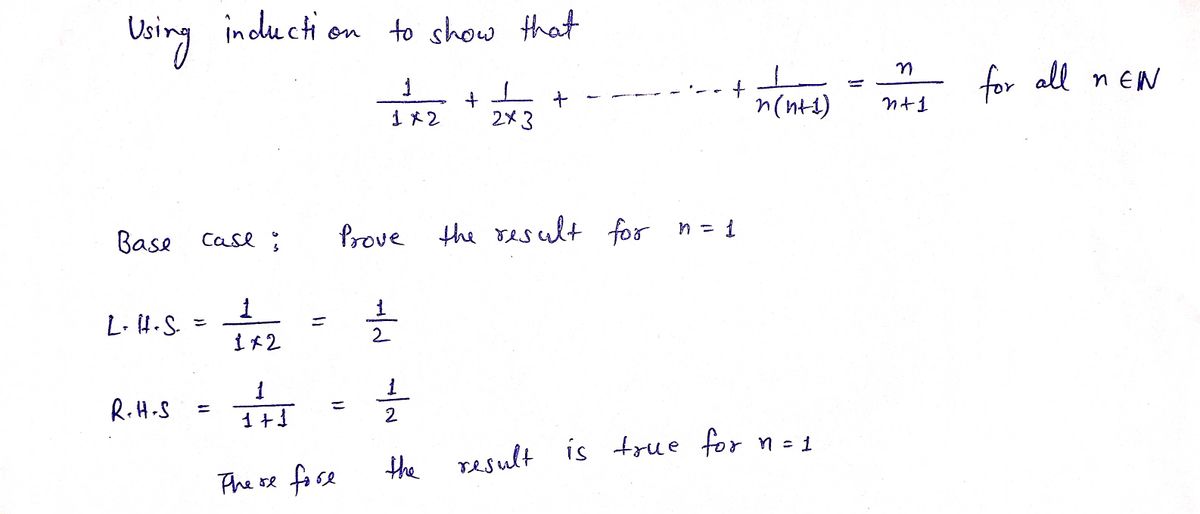 Using induction to show that
1/(1×2) + 1/(2×3) + - - - - - - - - + 1/(n(n+1)) = n/(n+1) for all n ∈ ℕ
Base case ; Prove the result for n = 1
L.H.S. = 1/(1×2) = 1/2
R.H.S = 1/(1+1) = 1/2
Therefore the result is true for n = 1